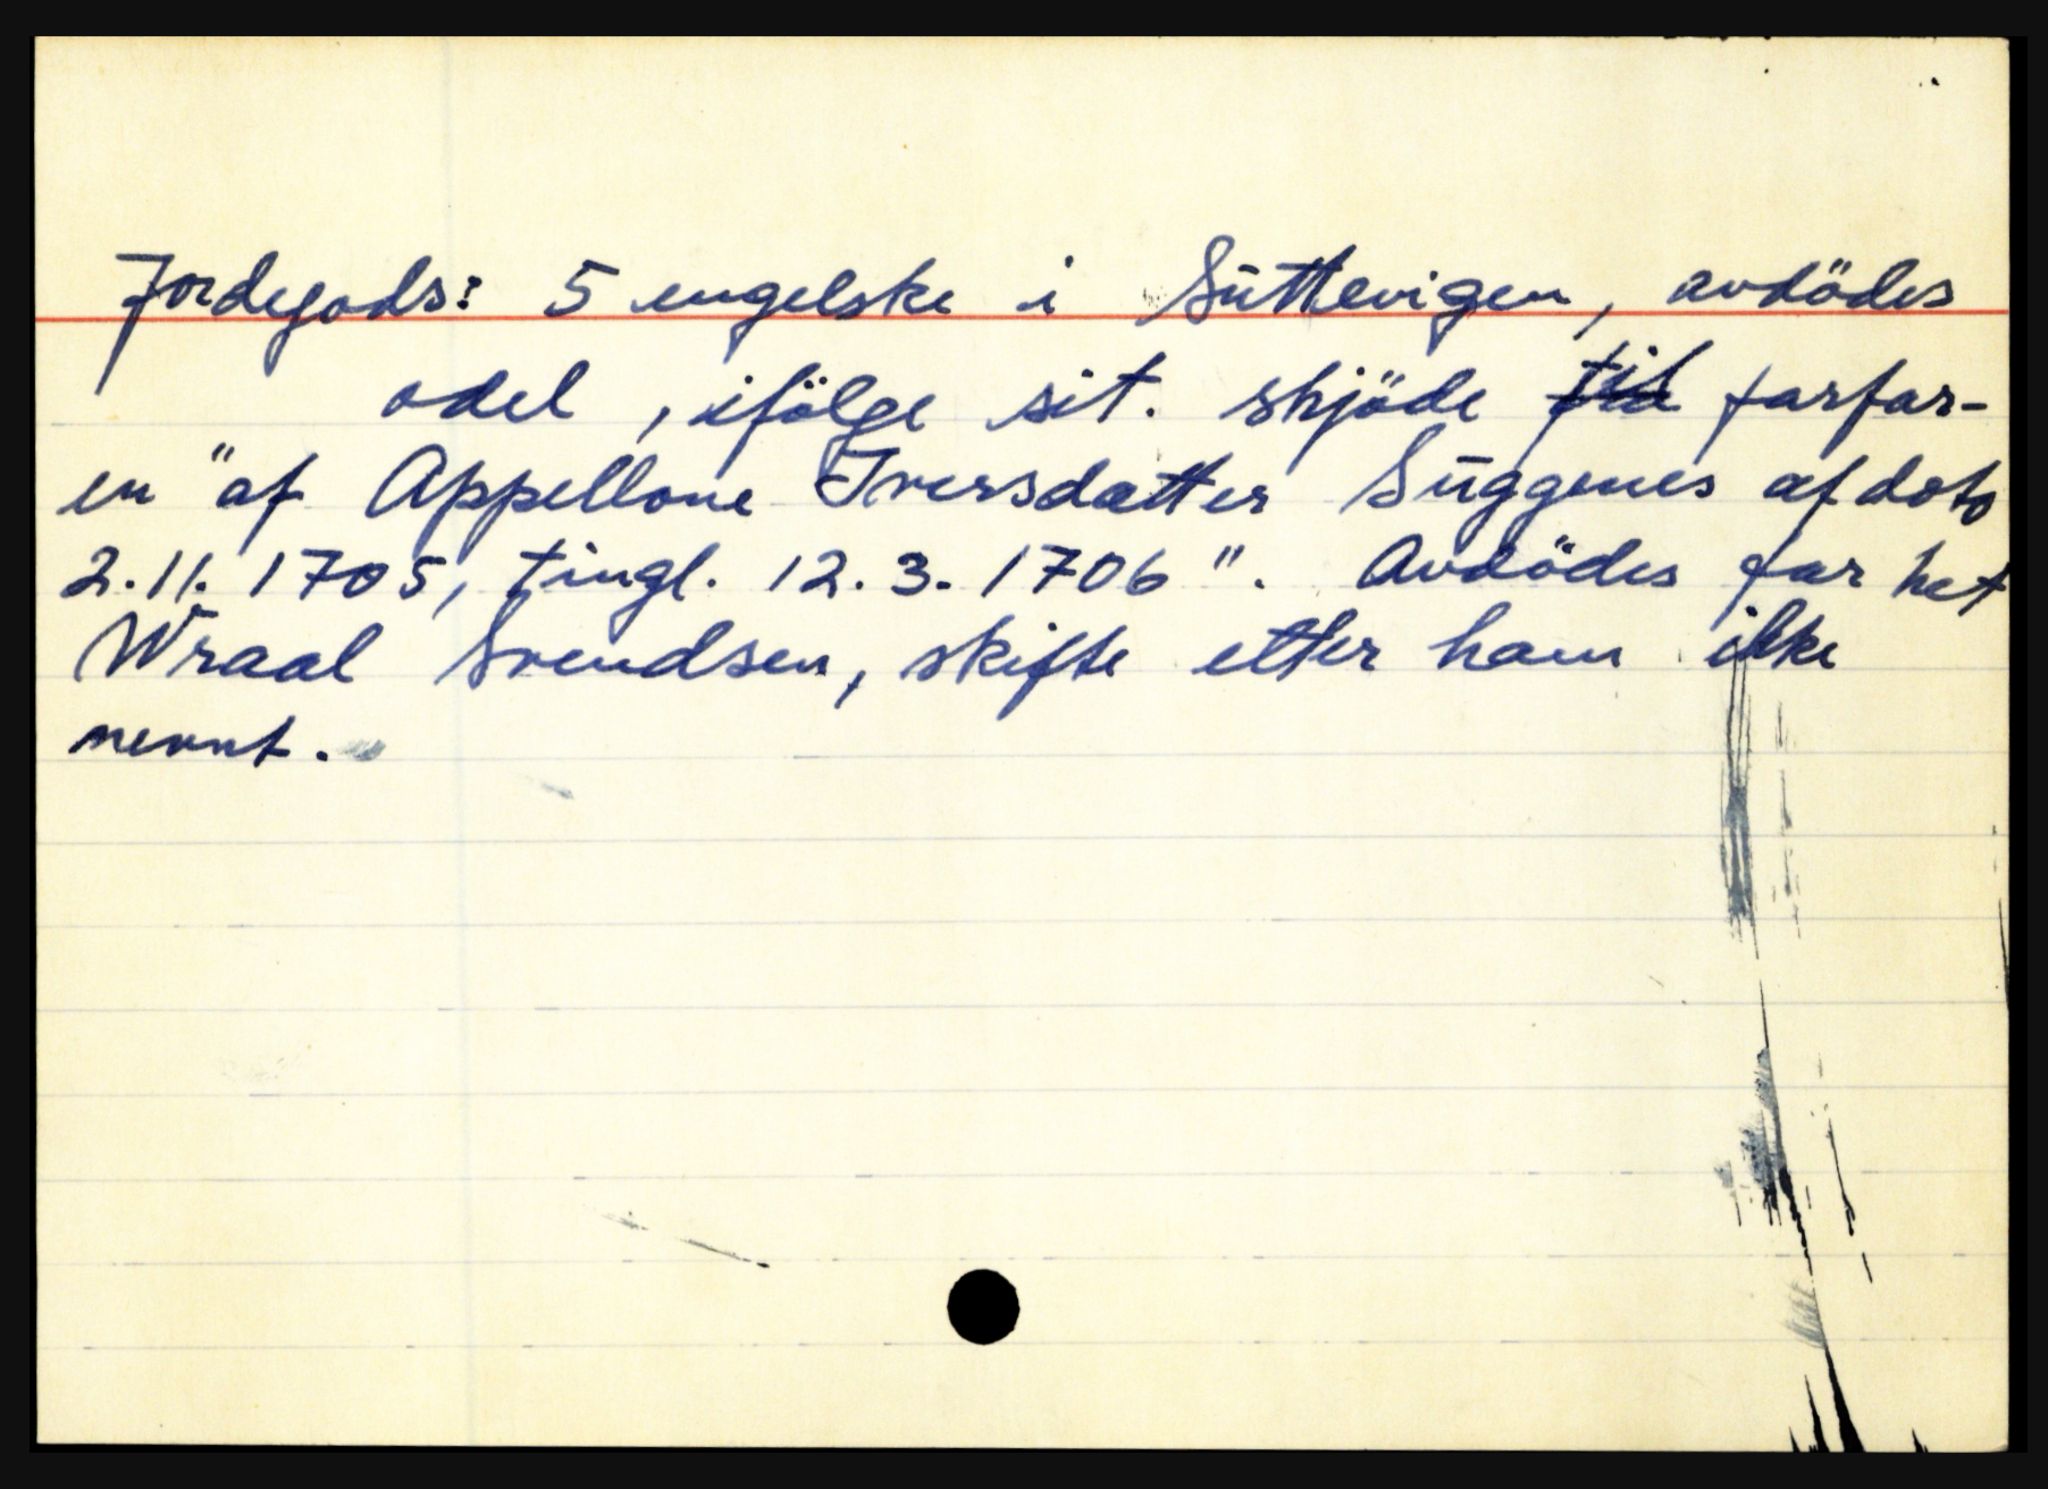 Jordegods: 5 engelske i Suttevigen, avdödes
odel, ifölge sit. skjöde til farfar-
en "af Appellone Iversdatter Suggenes af dato
2.11.1705, tingl. 12.3.1706". Avdödes far het
Wraal Svendsen, skifte etter ham ikke
nevnt.